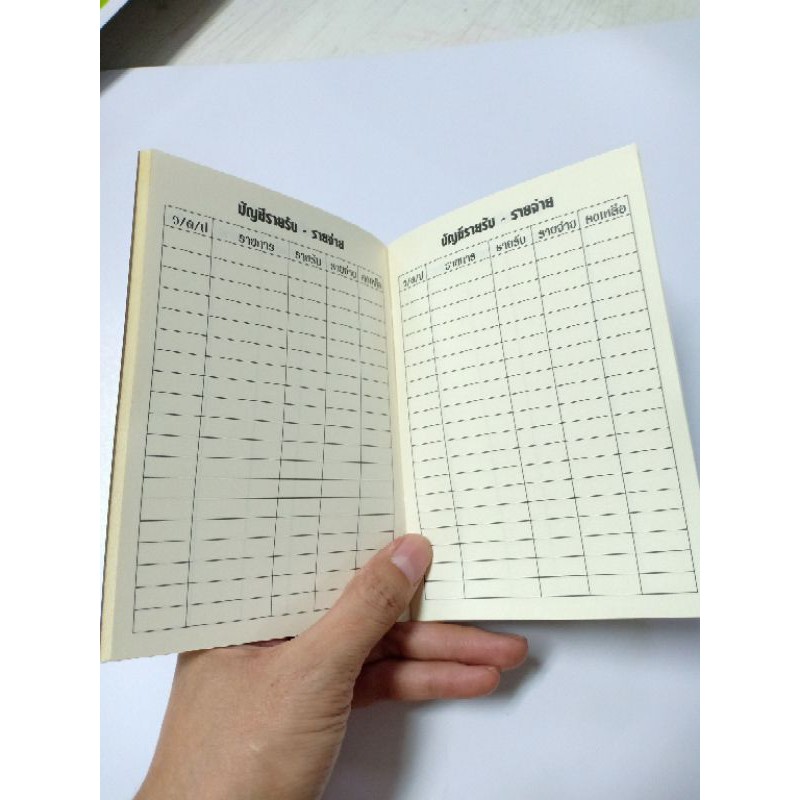 บัญชีรายรับ - รายจ่าย
ว/ด/ป รายการ รายรับ รายจ่าย คงเหลือ
บัญชีรายรับ - รายจ่าย
ว/ด/ป รายการ รายรับ รายจ่าย คงเหลือ